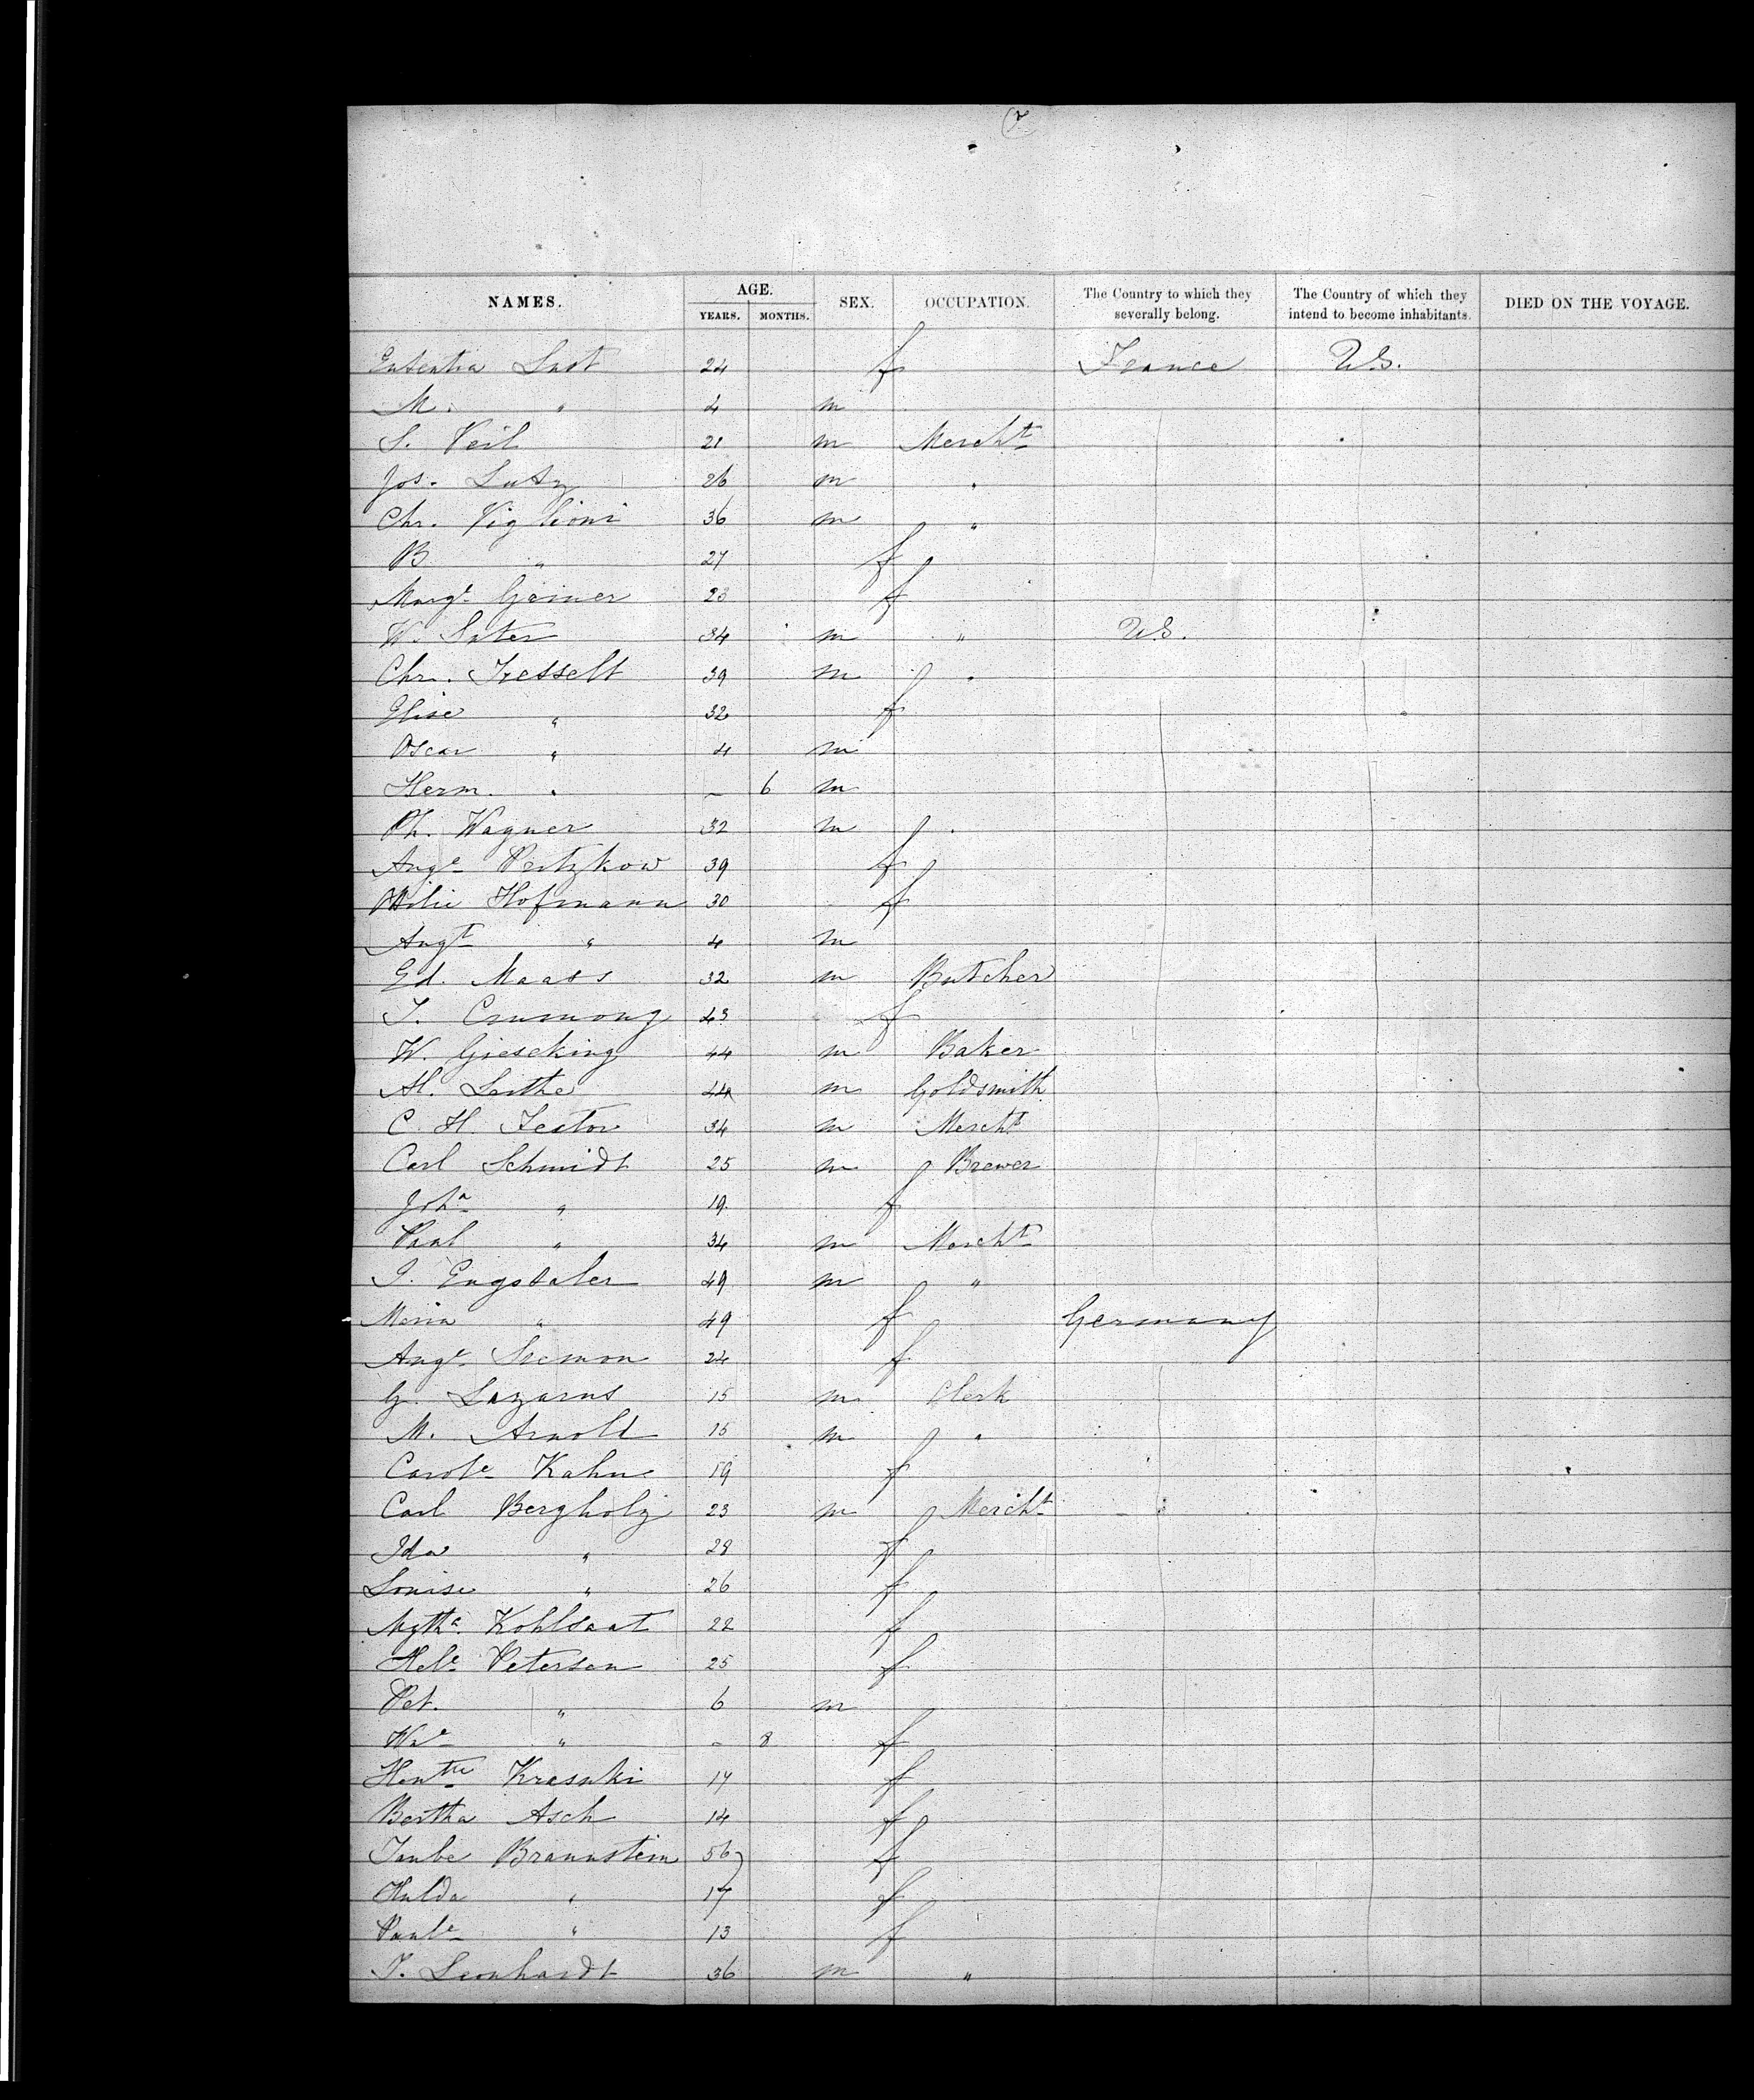 7
NAMES. AGE. SEX. OCCUPATION. The Country to which they severally belong. The Country of which they intend to become inhabitants. DIED ON THE VOYAGE.
YEARS. MONTHS.
Lust 24 f France U.S.
M. " 4 m
S. Veil 21 m Mercht
Jos. Lutz 26 m "
Chr. Viglioni 36 m "
B " 27 f
Margt. 23 f
W. Suter 34 m " U.S.
Chr. 39 m "
Elise " 32 f
Oscar " 4 m
Herm. " – 6 m
Ph. Wagner 32 m "
Auge Peitzkow 39 f
Hofmann 30 f
Augt " 4 m
Ed. Maass 32 m Butcher
43 f
W. Giesecking 44 m Baker
44 m Goldsmith
C. H. 34 m Mercht
Carl Schmidt 25 m Brewer
Joha " 19 f
Paul " 34 m Mercht
49 m "
Maria " 49 f Germany
Auge 24 f
G. Lazarus 15 m Clerk
M. Arnold 15 m "
Carole Kahn 19 f
Carl Bergholz 23 m Mercht
Ida " 28 f
Louise " 26 f
Kohlsaat 22 f
Hele Petersen 25 f
Pet. " 6 m
We " – 8 f
Krasuki 17 f
Bertha Asch 14 f
Taube Braunstein 56 f
Hulda " 17 f
Paule " 13 f
Leonhardt 36 m "